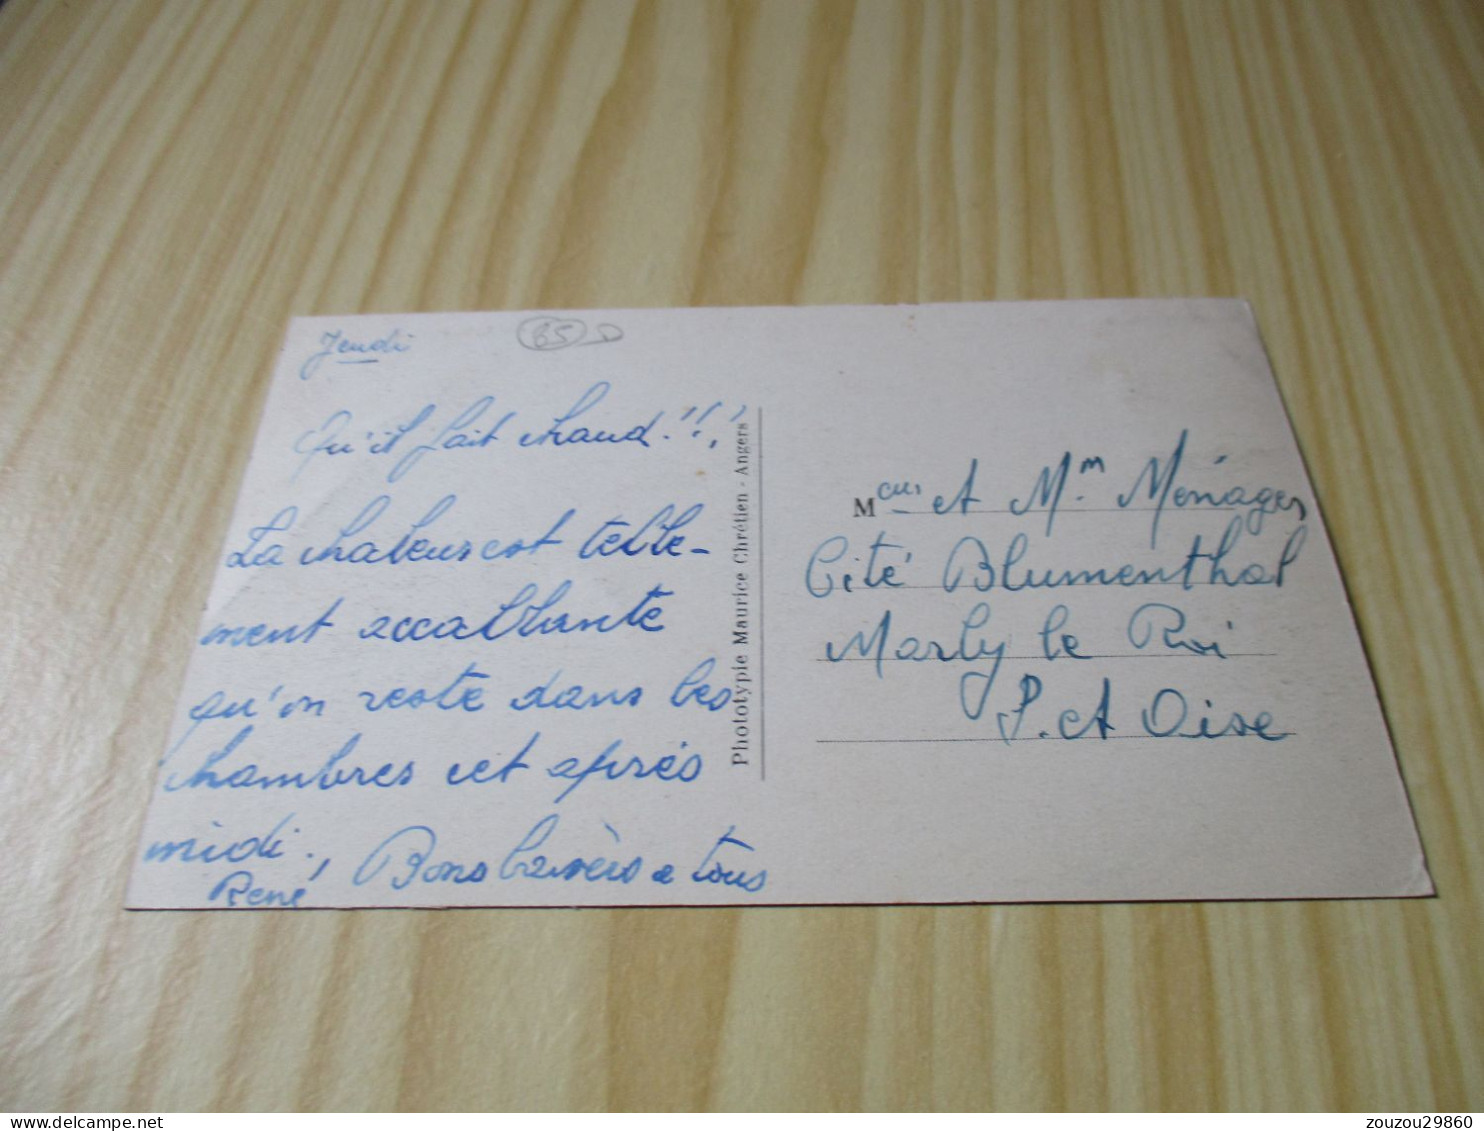 Jeudi
85
Qu'il fait chaud.!!!
La chaleur est telle-
ment accablante
qu'on reste dans les
chambres cet après
midi.
Bons baisers a tous
René
Phototypie Maurice Chrétien - Angers
Meur et Mm Ménager
Cité Blumenthal
Marly le Roi
S. et Oise
zouzou29860